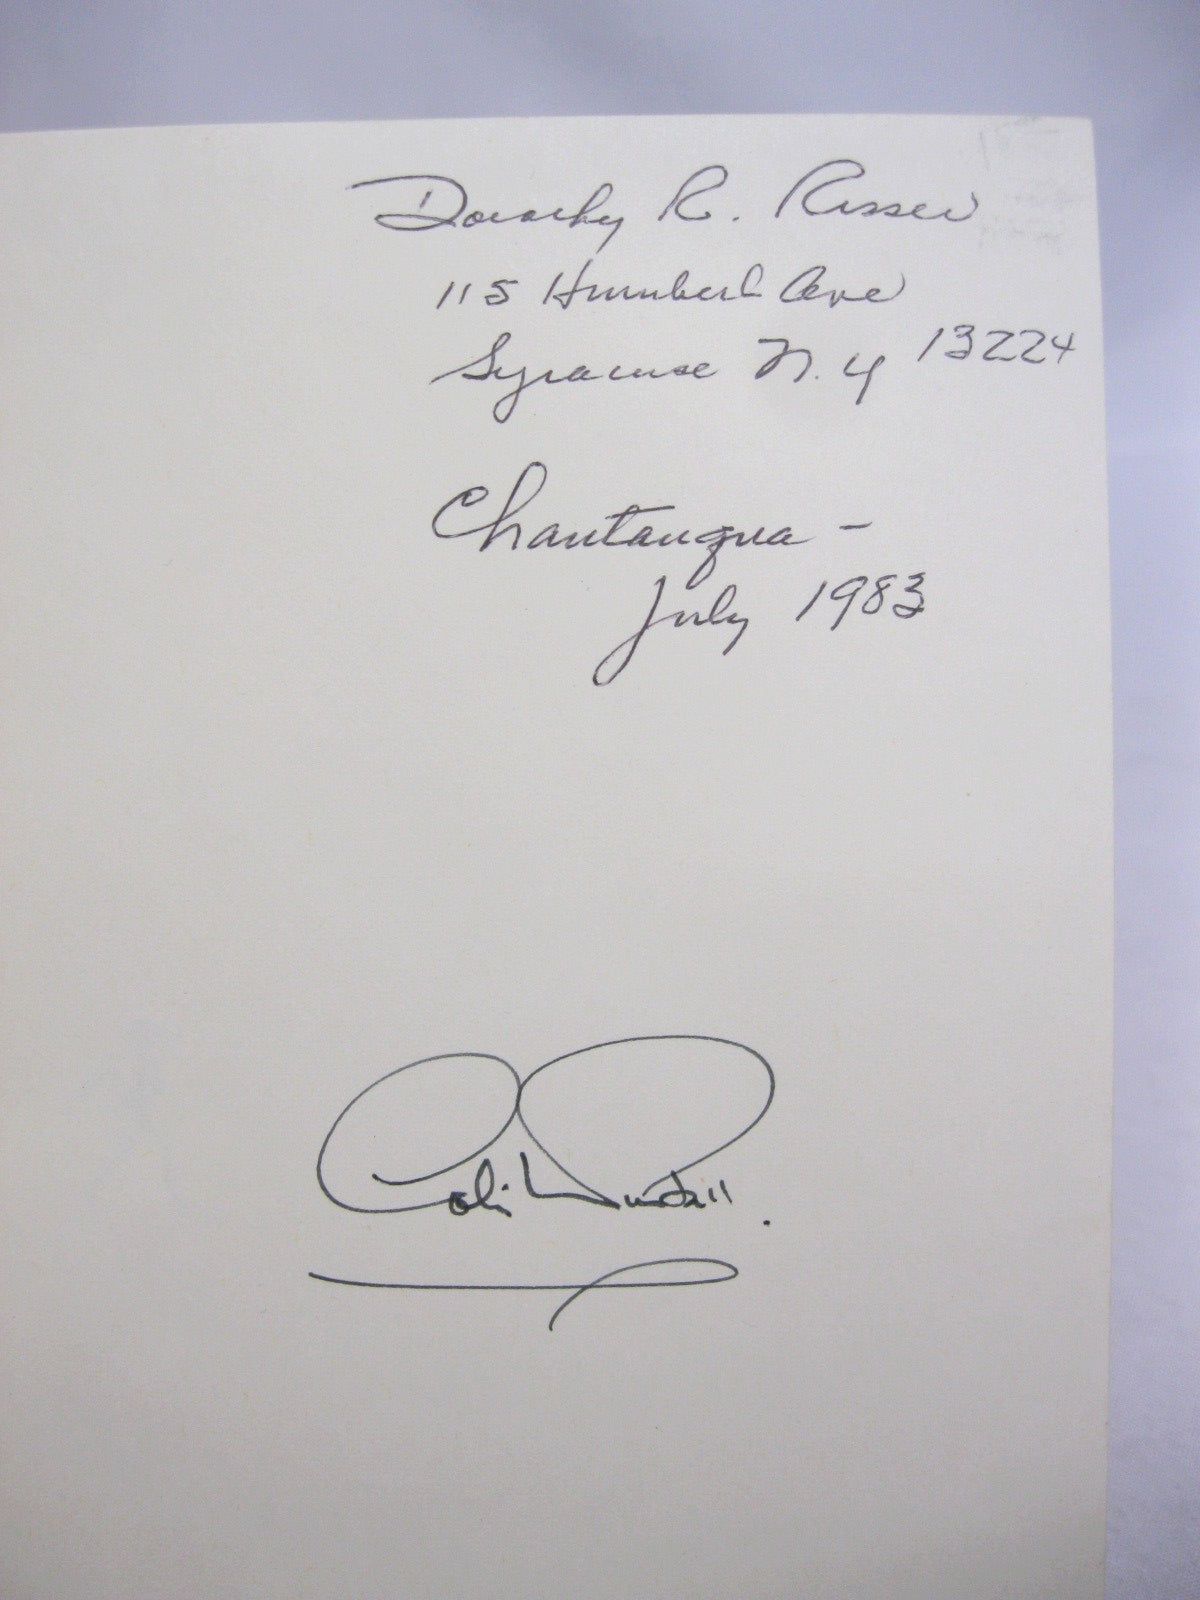 Dorothy R. Risser
115 Humbert Ave
Syracuse N.Y 13224
Chautauqua -
July 1983
Colin